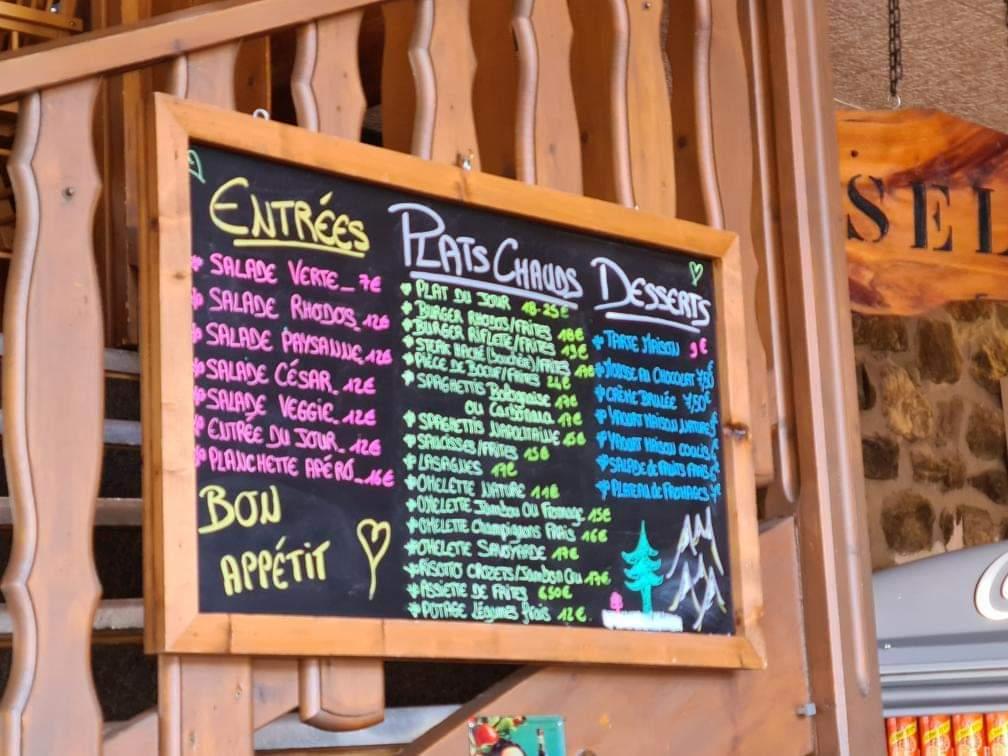 ENTRÉES
SALADE VERTE_ 7€
SALADE RHODOS_ 12€
SALADE PAYSANNE_12€
SALADE CÉSAR_ 12€
SALADE VEGGIE_ 12€
ENTRÉE DU JOUR_ 12€
PLANCHETTE APÉRO_16€
BON
APPÉTIT
PLATS CHAUDS
PLAT DU JOUR 18-25€
BURGER RHODOS/FRITES 18€
BURGER RIFLETTE/FRITES 19€
STEAK HACHÉ (Bouchère)/FRITES 17€
PIÈCE DE BOEUF/FRITES 24€
SPAGHETTIS Bolognaise 17€
ou Carbonara 17€
SPAGHETTIS NAPOLITAINE 15€
SAUCISSES/FRITES 15€
LASAGNES 17€
OMELETTE NATURE 11€
OMELETTE Jambon OU Fromage 15€
OMELETTE Champignons Frais 16€
OMELETTE SAVOYARDE 17€
RISOTTO CROZETS/Jambon Cru 17€
ASSIETTE DE FRITES 6,50€
POTAGE Légumes frais 12€
DESSERTS
TARTE MAISON 9€
MOUSSE AU CHOCOLAT 7,50
CRÈME BRULÉE 7,50€
YAOURT MAISON NATURE
YAOURT MAISON COULIS
SALADE de FRUITS FRAIS
PLATEAU de FROMAGES
SEL